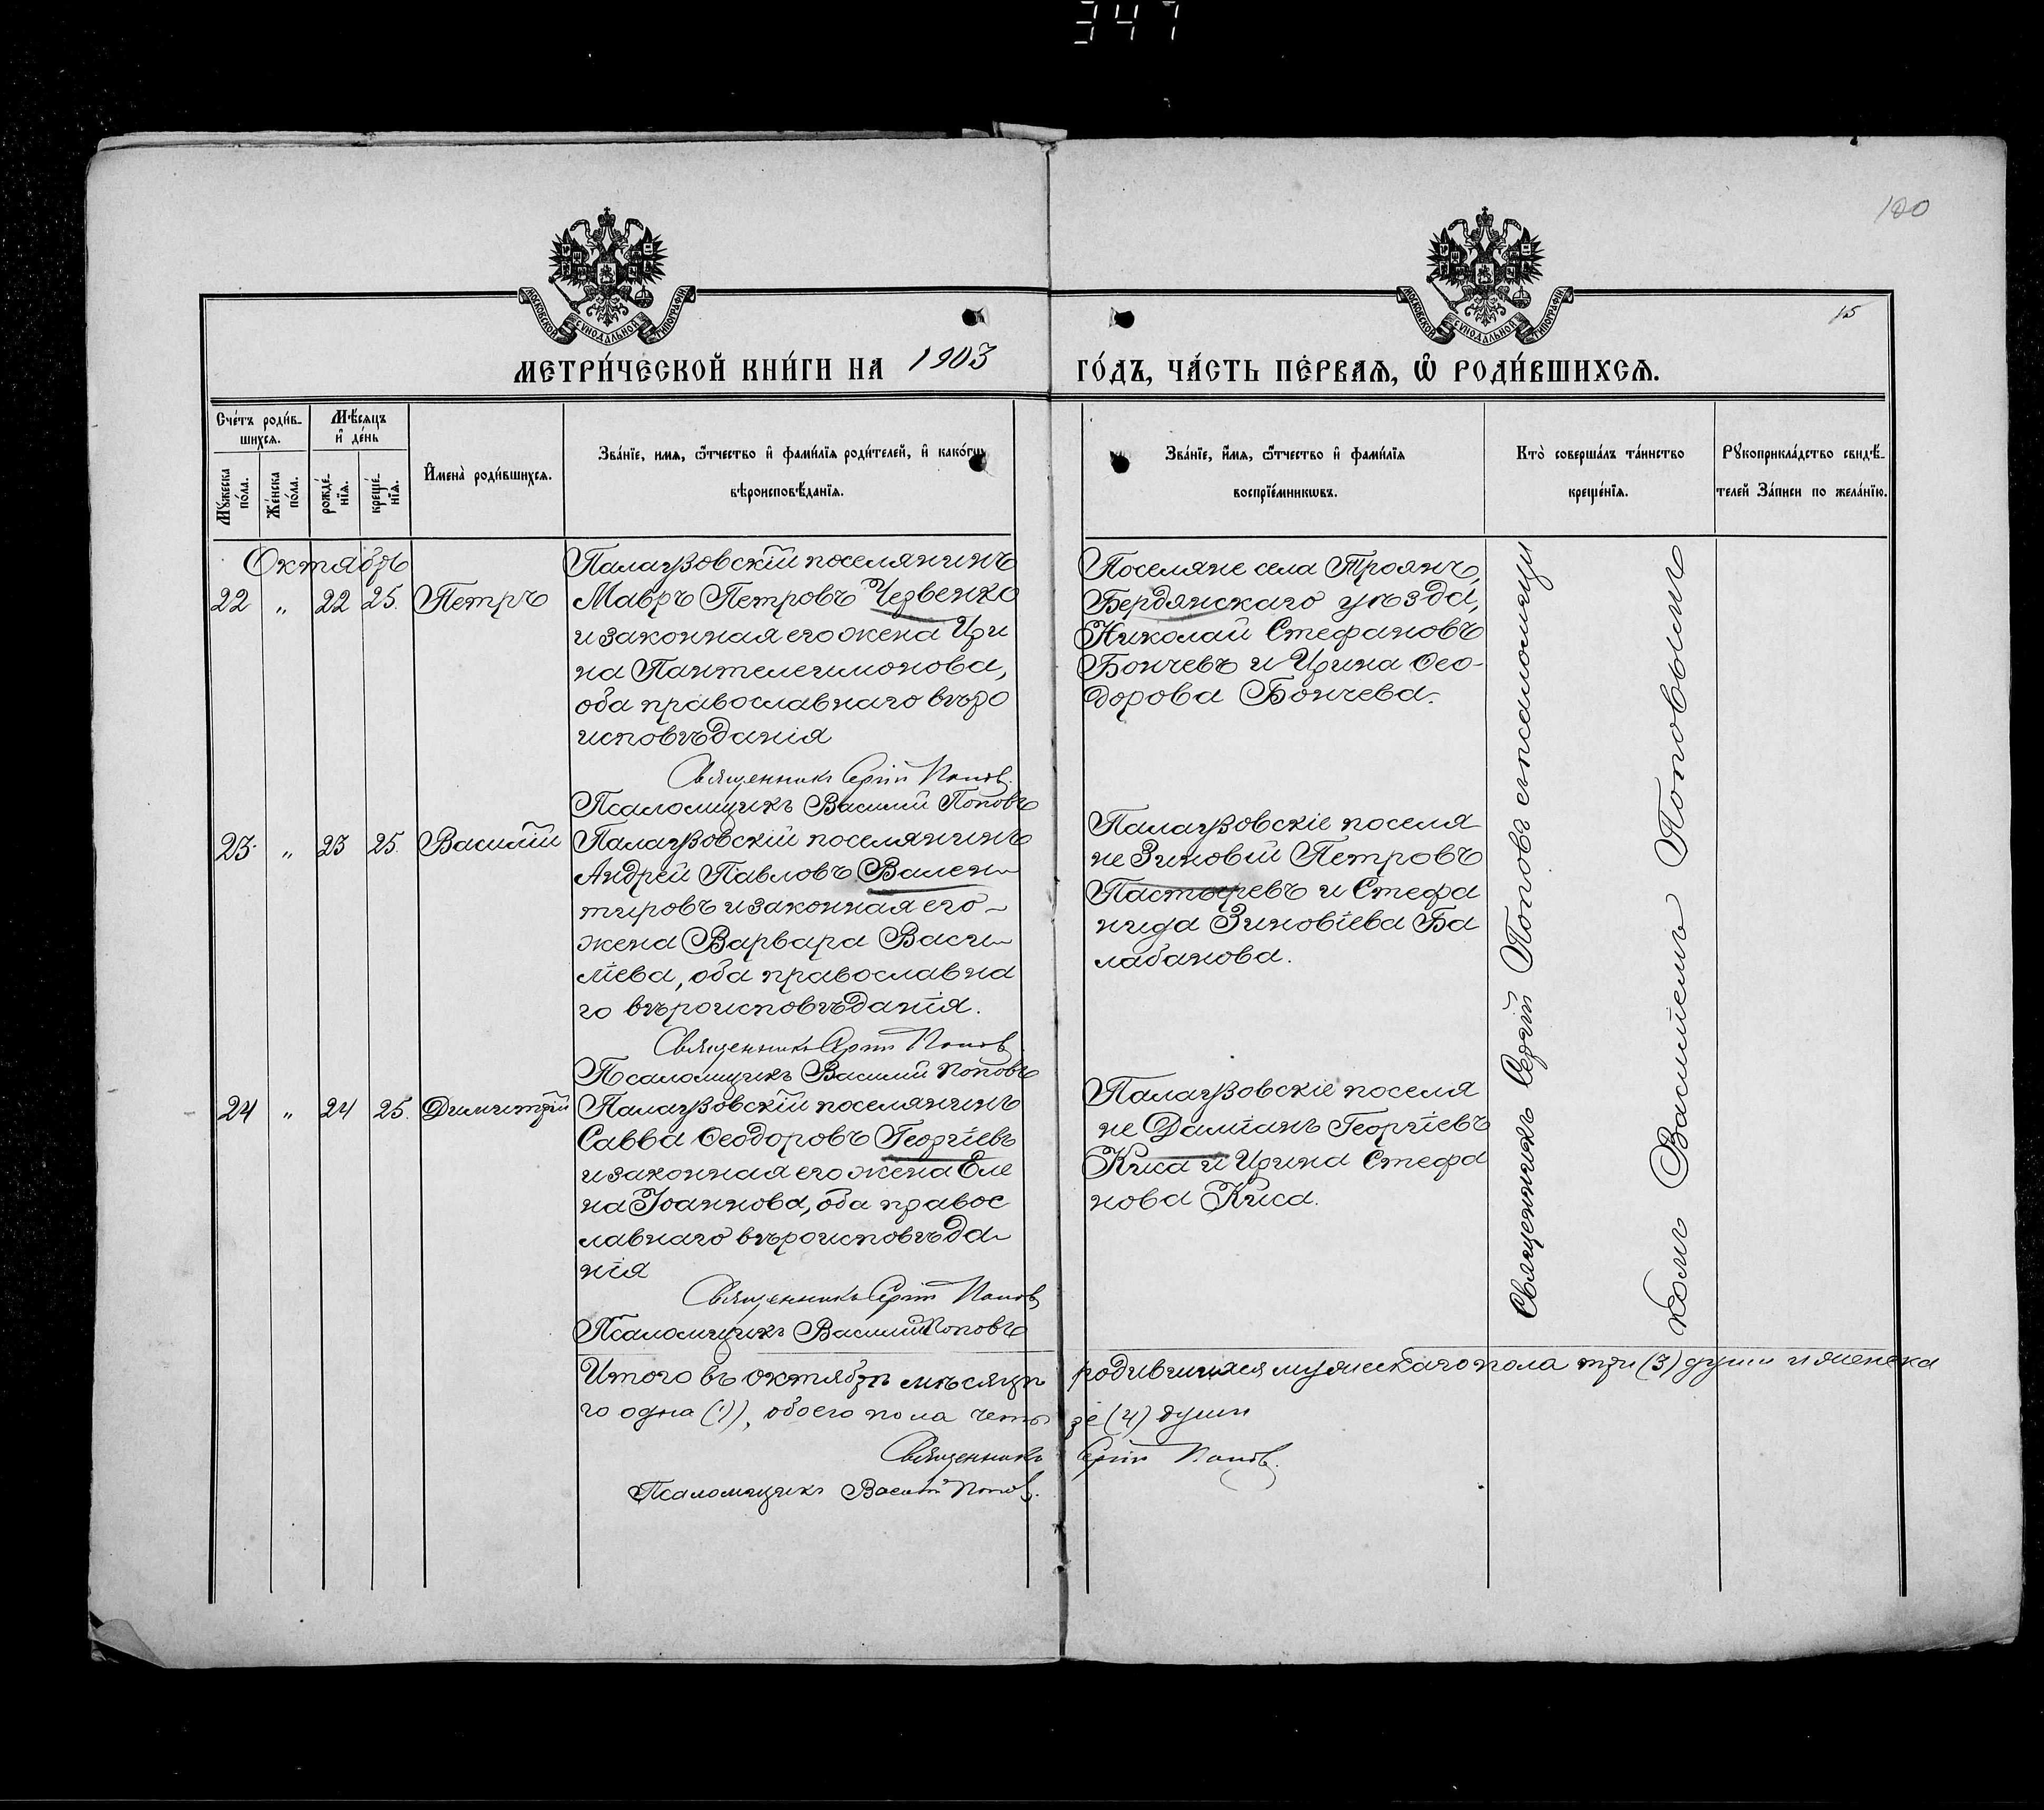 347
100
15
МОСКОВСКОЙ СѴНОДАЛЬНОЙ ТИПОГРАФІИ
МОСКОВСКОЙ СѴНОДАЛЬНОЙ ТИПОГРАФІИ
МЕТРИ́ЧЕСКОЙ КНИ́ГИ НА 1903 ГО́ДЪ, ЧА́СТЬ ПЕ́РВАЯ, Ѡ РОДИ́ВШИХСЯ.
Сче́тъ роди́в-
шихся.
Мꙋжеска
по́ла.
Же́нска
по́ла.
Мѣ́сяцъ
и де́нь
рожде́-
нїя.
креще́-
нїя.
Имена̀ роди́вшихся.
Зва́нїе, имя, ѻ́тчество и фами́лїя роди́телей, и како́гѡ
вѣроисповѣ́данїя.
Зва́нїе, и́мя, ѻ́тчество и фами́лїя
воспрїе́мникѡвъ.
Кто̀ соверша́лъ та́инство
креще́нїя.
Рꙋкоприкла́дство свидѣ́-
телей За́писи по жела́нїю.
Октябрь
22 „ 22 25. Петръ
Палаузовскій поселянинъ
Мавръ Петровъ Червенко
и законная его жена Ири
на Пантелеимонова,
оба православнаго вѣро
исповѣданія
Священникъ Сергій Попов.
Псаломщикъ Василий Поповъ
Поселяне села Троянъ,
Бердянскаго уѣзда,
Николай Стефановъ
Бончевъ и Ирина Ѳео-
дорова Бончева.
23. „ 23 25. Василій
Палаузовскій поселянинъ
Андрей Павловъ Вален-
тировъ и законная его -
жена Варвара Васи-
ліева, оба православна
го вѣроисповѣданія.
Священникъ Сергій Попов
Псаломщикъ Василий Поповъ
Палаузовскіе поселя
не Зиновій Петровъ
Пастыревъ и Стефа
нида Зиновіева Ба
лабанова.
24 „ 24 25. Димитрій
Палаузовскій поселянинъ
Савва Ѳеодоровъ Георгіевъ
и законная его жена Еле
на Іоаннова, оба правос
лавнаго вѣроисповѣда-
нія
Священникъ Сергій Попов
Псаломщикъ Василий Поповъ
Палаузовскіе поселя
не Даміанъ Георгіевъ
Киса и Ирина Стефа
нова Киса.
Священникъ Сергій Поповъ съ псаломщи
комъ Василіемъ Поповымъ
Итого въ октябрѣ мѣсяцѣ родившихся мужескаго пола три (3) души и женска
го одна (1), обоего пола четы ре (4) души
Священникъ Сергій Попов.
Псаломщикъ Василій Попов.